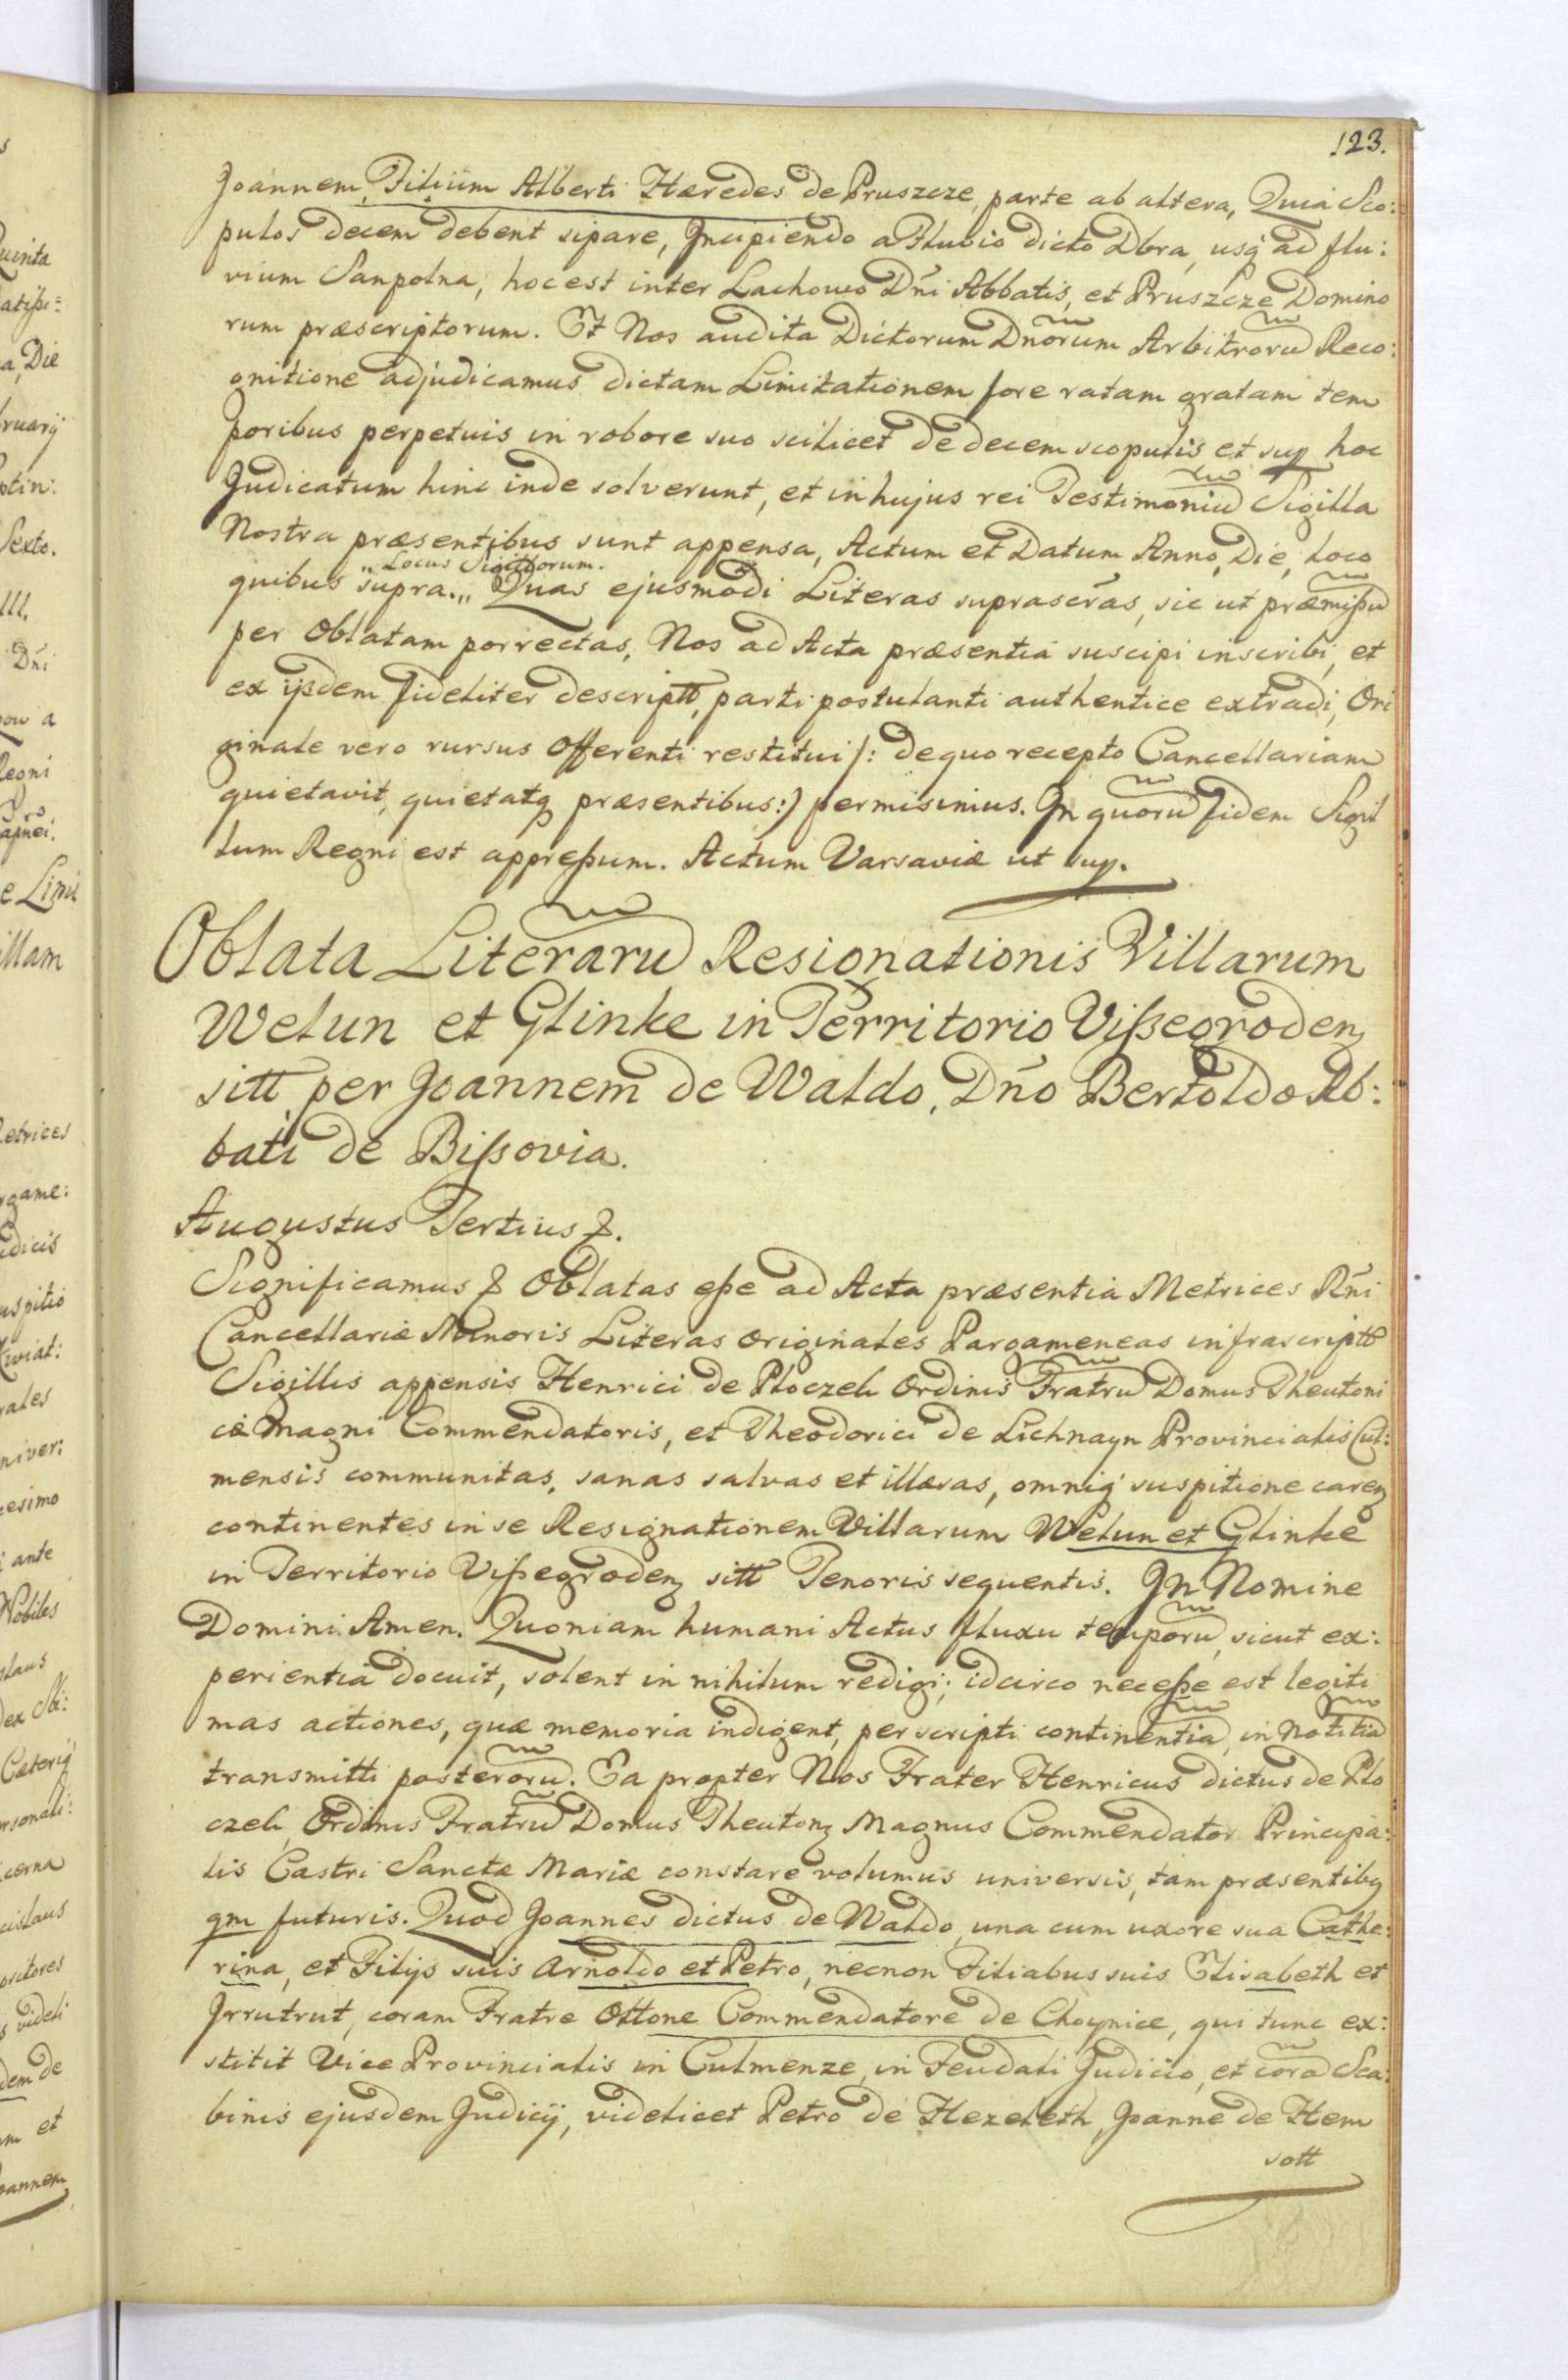 123.
Joannem, Filium Alberti Hæredes de Pruszcze, parte ab altera, Quia Sco:
pulos decem debent sipare, Incipiendo a Fluvio dicto Dbra, usq ad flu:
vium Sanpolna, hoc est inter Lachowo Dni Abbatis, et Pruszcze Domino
rum præscriptorum. Et Nos audita Dictorum Dnorum Arbitroru Reco:
gnitione adjudicamus dictam Limitationem fore ratam gratam tem
poribus perpetuis in robore suo scilicet de decem scopulis et sup hoc
Judicatum hinc inde solverunt, et in hujus rei Testimoniu Sigilla
Nostra præsentibus sunt appensa, Actum et Datum Anno, Die, Loco
„Locus Sigillorum.
quibus supra.„ Quas ejusmodi Literas suprascras, sic ut præmißu
per Oblatam porrectas, Nos ad Acta præsentia suscipi inscribi, et
ex ijsdem fideliter descriptt, parti postulanti authentice extradi, Ori
ginale vero rursus Offerenti restitui /: de quo recepto Cancellariam
quietavit, quietatq præsentibus:) permisimus. In quoru fidem Sigil
lum Regni est appreßum. Actum Varsaviæ ut sup.
Oblata Literaru Resignationis Villarum
Welun et Glinke in Territorio Vißegrodenz
sitt per Joannem de Waldo, Dno Bertoldo Ab:
bati de Bißovia.
Augustus Tertius &.
Significamus & Oblatas eße ad Acta præsentia Metrices Rni
Cancellariæ Minoris Literas originales Pargameneas infrascriptt
Sigillis appensis Henrici de Ploczeh Ordinis Fratru Domus Theutoni
cæ Magni Commendatoris, et Theodorici de Lichnayn Provincialis Cul:
mensis communitas, sanas salvas et illæsas, omniq suspitione carenz
continentes in se Resignationem Villarum Welun et Glinke
in Territorio Vißegrodenz sitt Tenoris sequentis. In Nomine
Domini Amen. Quoniam humani Actus fluxu temporu, sicut ex:
perientia docuit, solent in nihilum redigi; idcirco neceße est legiti
mas actiones, quæ memoria indigent, per scripti continentia, in notitia
transmitti posteroru. Ea propter Nos Frater Henricus dictus de Plo
czeh, Ordinis Fratru Domus Theutonz Magnus Commendator Principa:
lis Castri Sanctæ Mariæ constare volumus universis, tam præsentibq
qm futuris. Quod Joannes dictus de Waldo, una cum uxore sua Cathe:
rina, et Filijs suis Arnoldo et Petro, necnon Filiabus suis Elisabeth et
Irrutrut, coram Fratre Ottone Commendatore de Choynice, qui tunc ex:
stitit Vice Provincialis in Culmenze, in Feudali Judicio, et cora Sca:
binis ejusdem Judicij, videlicet Petro de Hezeleth, Joanne de Hem
sott